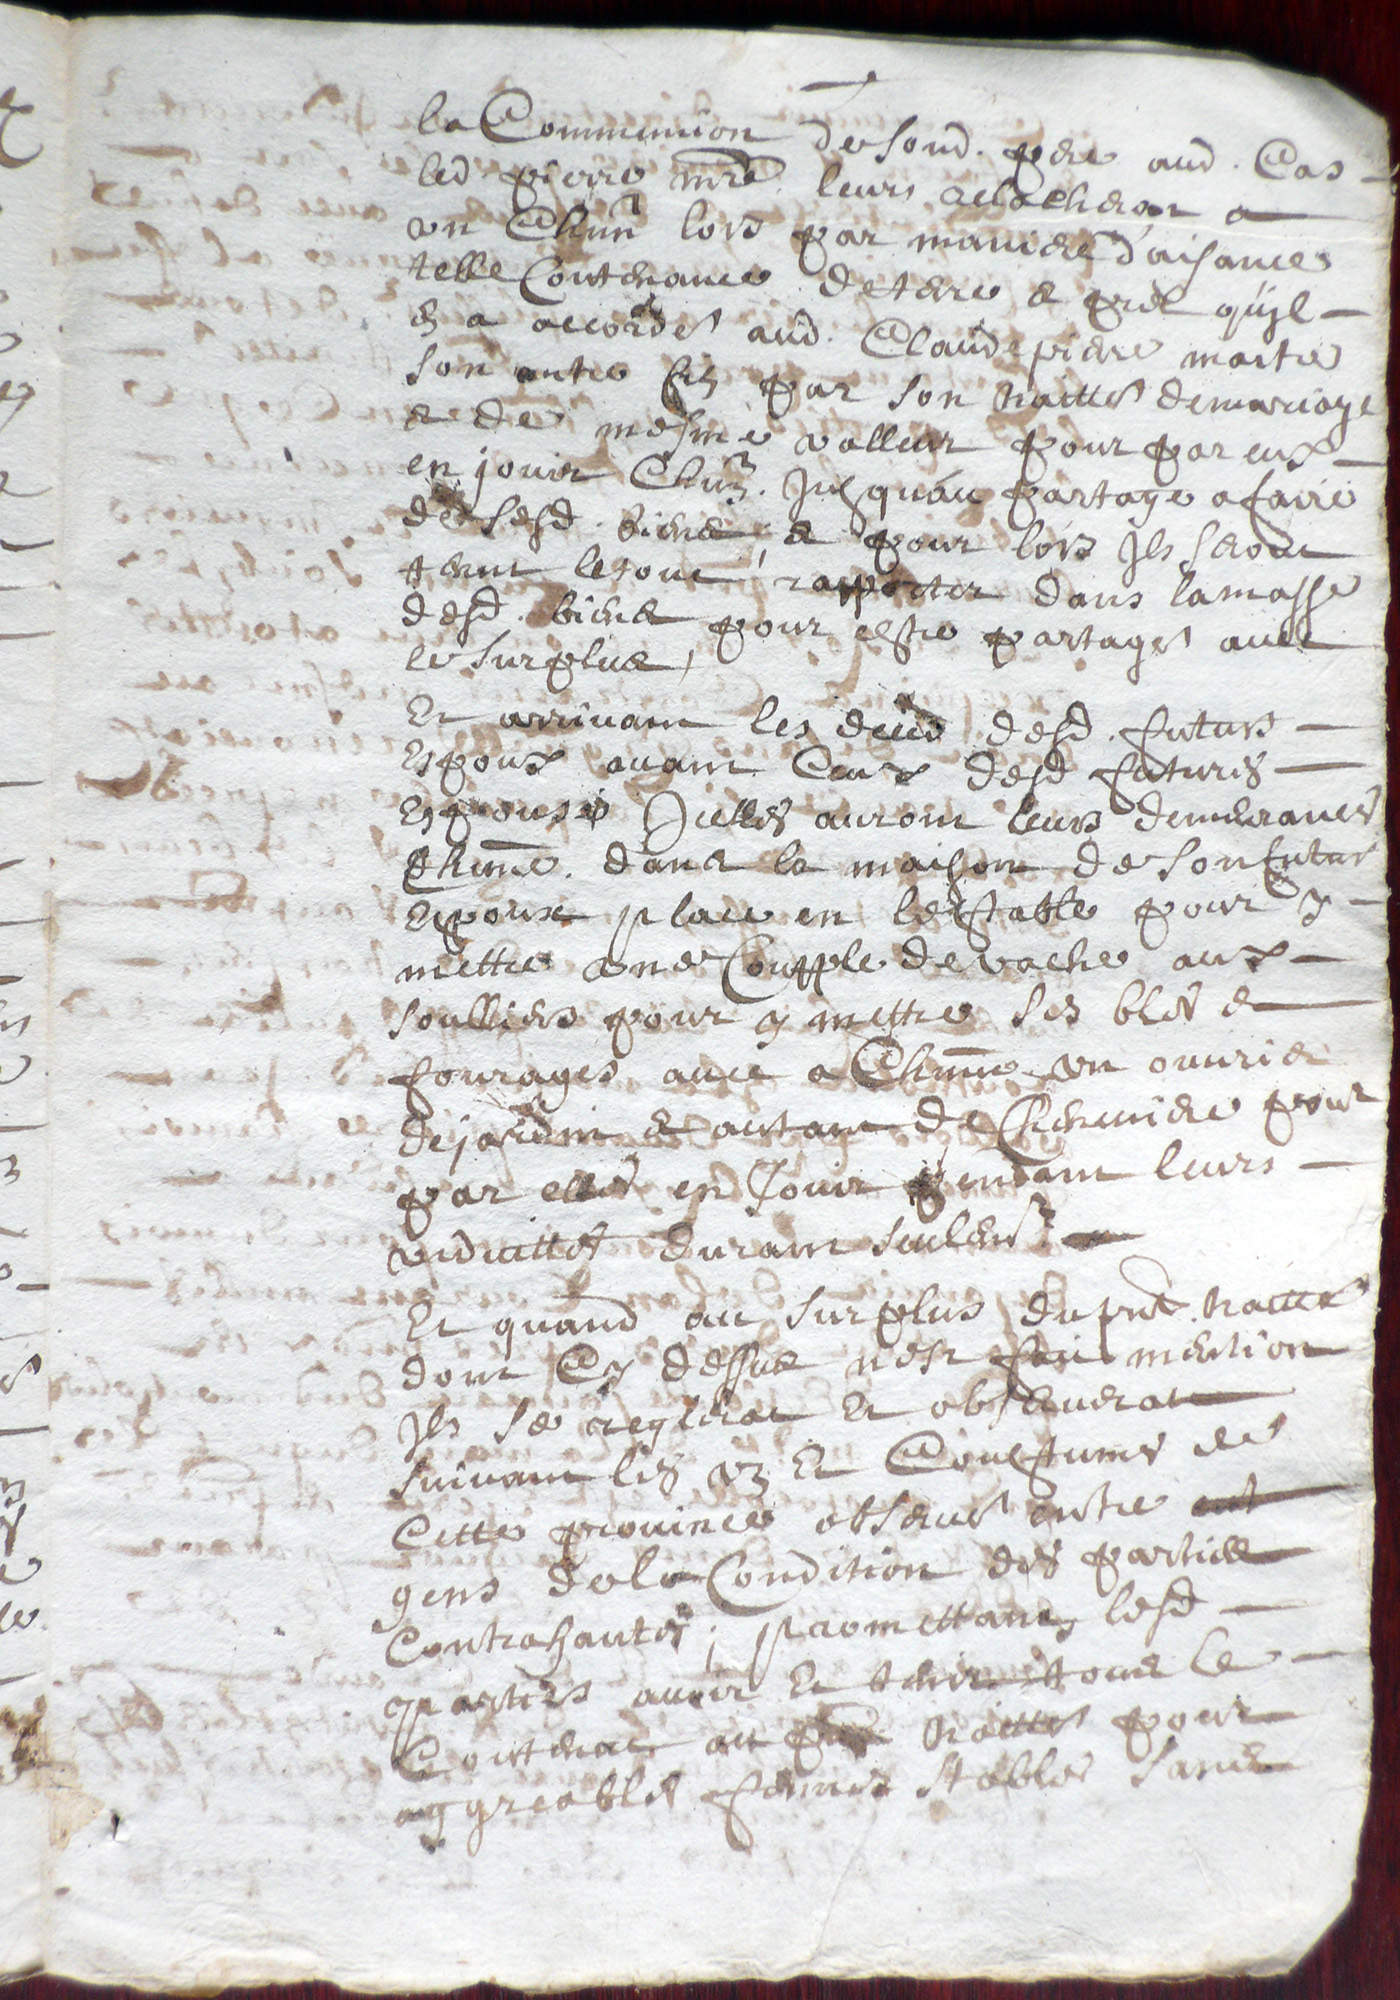 la Communion de sond. pere aud. Cas
led. pierre mre. leurs relachera a
un Chun lors par maniere d'aisance
telle Contenance de terre & prel quyl
en a accordes aud. Claude pierre maitre
son autre filz par son traitté de mariage
& de mesme valleur pour par eux
en jouir Chun. jusquau partage a faire
de sesd. biens, & pour lors Ils seront
tenus le tout rapporter dans la masse
desd. biens pour estre partagés avec
le surplus,
Et arrivant les deceds desd. futurs
Espoux avant Ceux desd futures
Espouses Icelles auront leurs demeurances
Chune. dans la maison de son futur
Espoux place en lestable pour y
mettre une Coupple de vache aux
soulliers pour y mettre ses bleds &
fourages avec a Chune un ouvrier
de jardin & autant de Cheneviere pour
par elles en Jouir pendant leurs
viduittés durant seulemt
Et quand au surplus du pnt. traitté
dont Cy dessus nest fait mention
Ils se reglerat Et observerat
suivant les uz Et Coustumes de
Cette province observés entre
gens de la Condition des parties
Contrahantes, promettans lesd
parties avoir Et tenir tout le
Contenu au pnt traitté pour
aggreables fermes stables sans